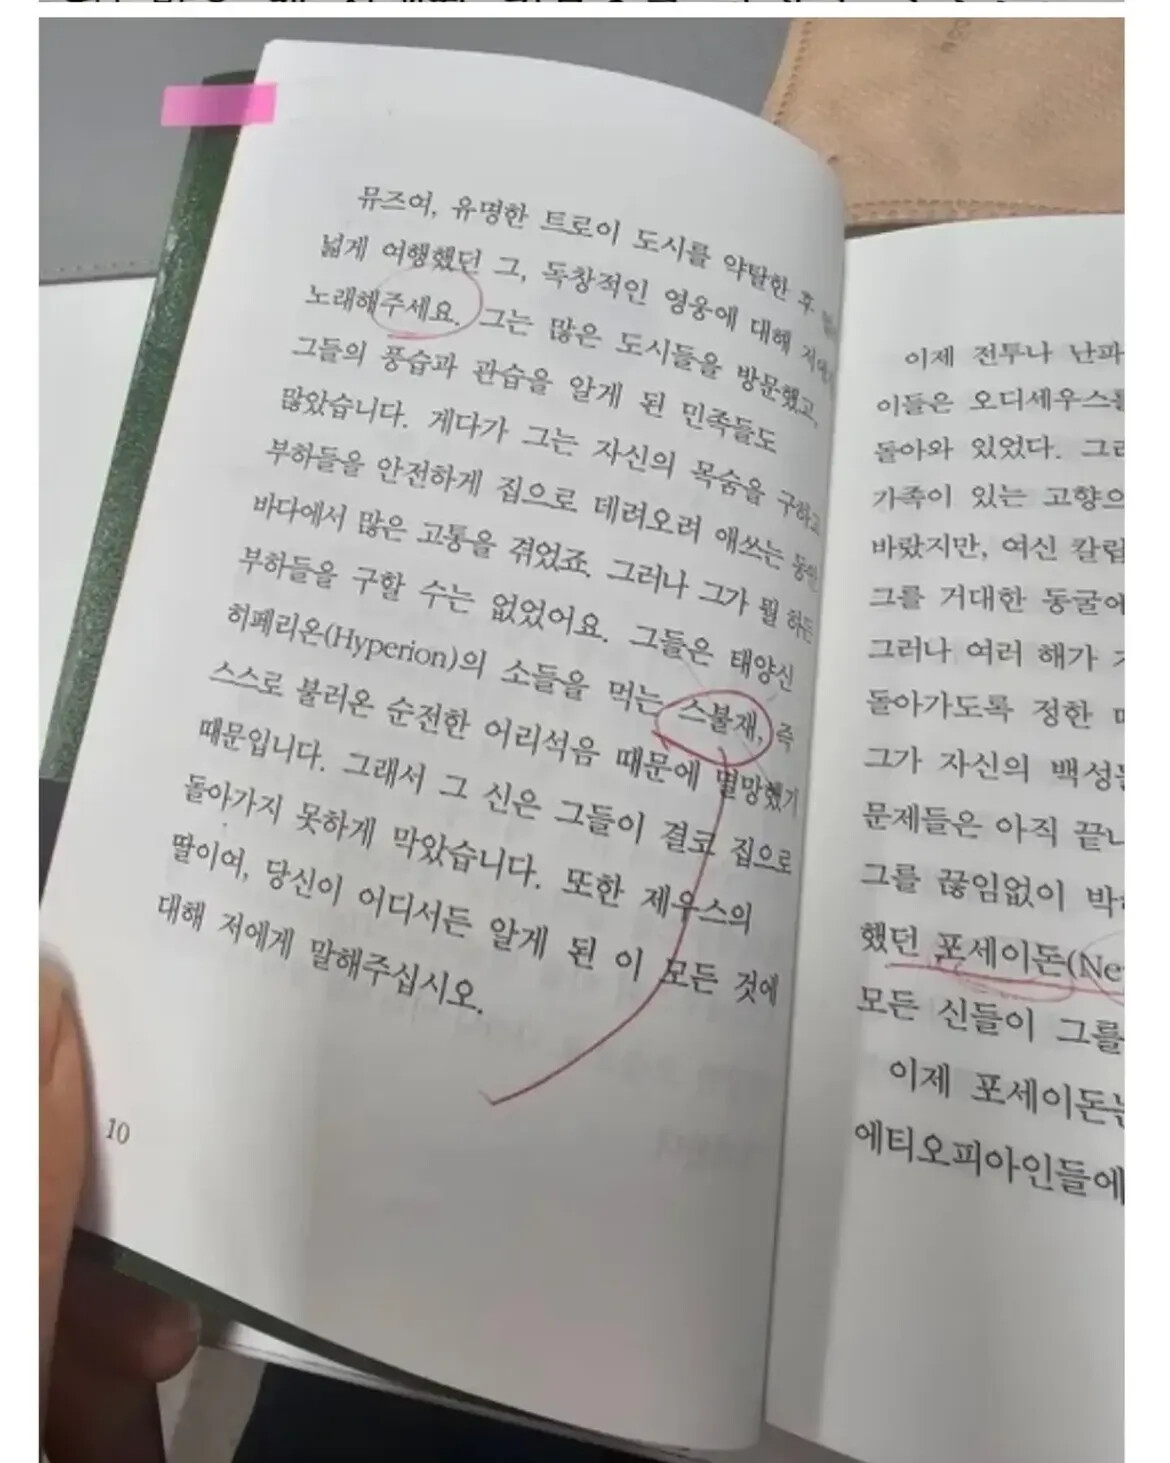 뮤즈여, 유명한 트로이 도시를 약탈한 후
넓게 여행했던 그, 독창적인 영웅에 대해
노래해주세요. 그는 많은 도시들을 방문했고,
그들의 풍습과 관습을 알게 된 민족들도
많았습니다. 게다가 그는 자신의 목숨을 구하고
부하들을 안전하게 집으로 데려오려 애쓰는 동안
바다에서 많은 고통을 겪었죠. 그러나 그가 뭘 하든
부하들을 구할 수는 없었어요. 그들은 태양신
히페리온(Hyperion)의 소들을 먹는 스불재, 즉
스스로 불러온 순전한 어리석음 때문에 멸망했기
때문입니다. 그래서 그 신은 그들이 결코 집으로
돌아가지 못하게 막았습니다. 또한 제우스의
딸이여, 당신이 어디서든 알게 된 이 모든 것에
대해 저에게 말해주십시오.
10
이제 전투나 난파
이들은 오디세우스를
돌아와 있었다.
가족이 있는 고향으
바랐지만, 여신 칼립
그를 거대한 동굴에
그러나 여러 해가
돌아가도록 정한
그가 자신의 백성들
문제들은 아직 끝나
그를 끊임없이 박
했던 포세이돈(Ne
모든 신들이 그를
이제 포세이돈는
에티오피아인들에